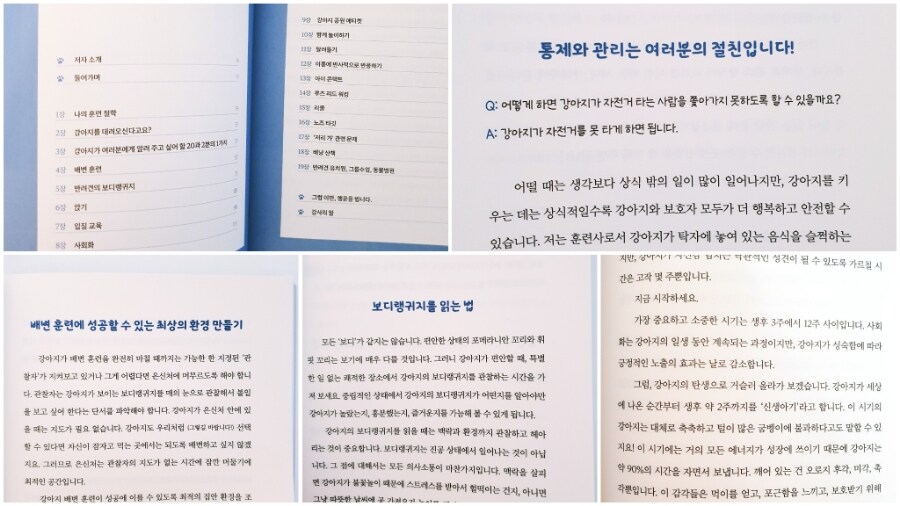 저자 소개
들어가며
1장 나의 훈련 철학
2장 강아지를 데려오신다고요?
3장 강아지가 여러분에게 알려 주고 싶어 할 20과 2분의 1가지
4장 배변 훈련
5장 반려견의 보디랭귀지
6장 앉기
7장 입질 교육
8장 사회화
9장 강아지 공원 에티켓
10장 함께 놀이하기
11장 엎어들기
12장 이름에 반사적으로 반응하기
13장 아이 콘택트
14장 루즈 리드 워킹
15장 리콜
16장 노즈 타깃
17장 '저리 가' 관련 문제
18장 배낭 산책
19장 반려견 유치원, 그룹수업, 동물병원
그럼 이만, 행운을 빕니다.
감사의 말
통제와 관리는 여러분의 절친입니다!
Q: 어떻게 하면 강아지가 자전거 타는 사람을 쫓아가지 못하도록 할 수 있을까요?
A: 강아지가 자전거를 못 타게 하면 됩니다.
어떨 때는 생각보다 상식 밖의 일이 많이 일어나지만, 강아지를 키
우는 데는 상식적일수록 강아지와 보호자 모두가 더 행복하고 안전할 수
있습니다. 저는 훈련사로서 강아지가 탁자에 놓여 있는 음식을 슬쩍하는
배변 훈련에 성공할 수 있는 최상의 환경 만들기
강아지가 배변 훈련을 완전히 마칠 때까지는 가능한 한 지정된 '관
찰자'가 지켜보고 있거나 그게 어렵다면 은신처에 머무르도록 해야 합니
다. 관찰자는 강아지가 보이는 보디랭귀지를 매의 눈으로 관찰해서 볼일
을 보고 싶어 한다는 단서를 파악해야 합니다. 강아지가 은신처 안에 있
을 때는 지도가 필요 없습니다. 강아지도 우리처럼 (그렇길 바랍니다!) 선택
할 수 있다면 자신이 잠자고 먹는 곳에서는 되도록 배변하고 싶지 않겠
지요. 그러므로 은신처는 관찰자의 지도가 없는 시간에 잠깐 머물기에
최적인 공간입니다.
강아지 배변 훈련이 성공에 이를 수 있도록 최적의 집안 환경을 조
보디랭귀지를 읽는 법
모든 '보디'가 같지는 않습니다. 편안한 상태의 포메라니안 꼬리와 휘
핏 꼬리는 보기에 매우 다를 것입니다. 그러니 강아지가 편안할 때, 특별
한 일 없는 쾌적한 장소에서 강아지의 보디랭귀지를 관찰하는 시간을 가
져 보세요. 중립적인 상태에서 강아지의 보디랭귀지가 어떤지를 알아야만
강아지가 놀랐는지, 흥분했는지, 즐거운지를 가늠해 볼 수 있게 됩니다.
강아지의 보디랭귀지를 읽을 때는 맥락과 환경까지 관찰하고 헤아
리는 것이 중요합니다. 보디랭귀지는 진공 상태에서 일어나는 것이 아닙
니다. 그 점에 대해서는 모든 의사소통이 마찬가지입니다. 맥락을 살피
면 강아지가 불꽃놀이 때문에 스트레스를 받아서 헐떡이는 건지, 아니면
간은 고작 몇 주뿐입니다.
지금 시작하세요.
가장 중요하고 소중한 시기는 생후 3주에서 12주 사이입니다. 사회
화는 강아지의 일생 동안 계속되는 과정이지만, 강아지가 성숙함에 따라
긍정적인 노출의 효과는 날로 감소합니다.
그럼, 강아지의 탄생으로 거슬러 올라가 보겠습니다. 강아지가 세상
에 나온 순간부터 생후 약 2주까지를 '신생아기'라고 합니다. 이 시기의
강아지는 대체로 축축하고 털이 많은 굼벵이에 불과하다고도 말할 수 있
지요! 이 시기에는 거의 모든 에너지가 성장에 쓰이기 때문에 강아지는
약 90%의 시간을 자면서 보냅니다. 깨어 있는 건 오로지 후각, 미각, 촉
각뿐입니다. 이 감각들은 먹이를 얻고, 포근함을 느끼고, 보호받기 위해